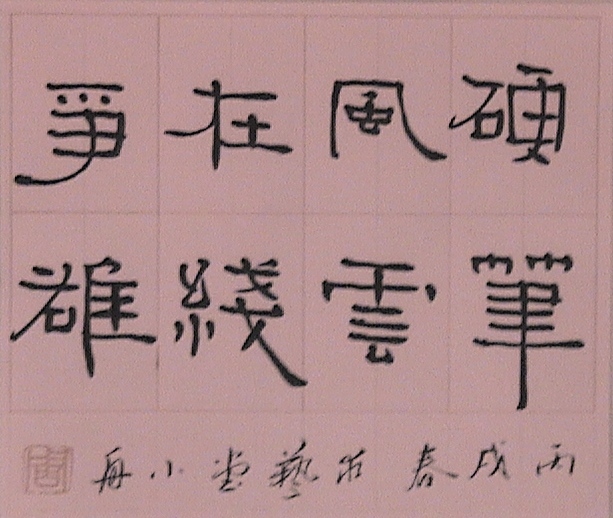 硬筆
風雲
在綫
爭雄
丙戌春藝堂小舟